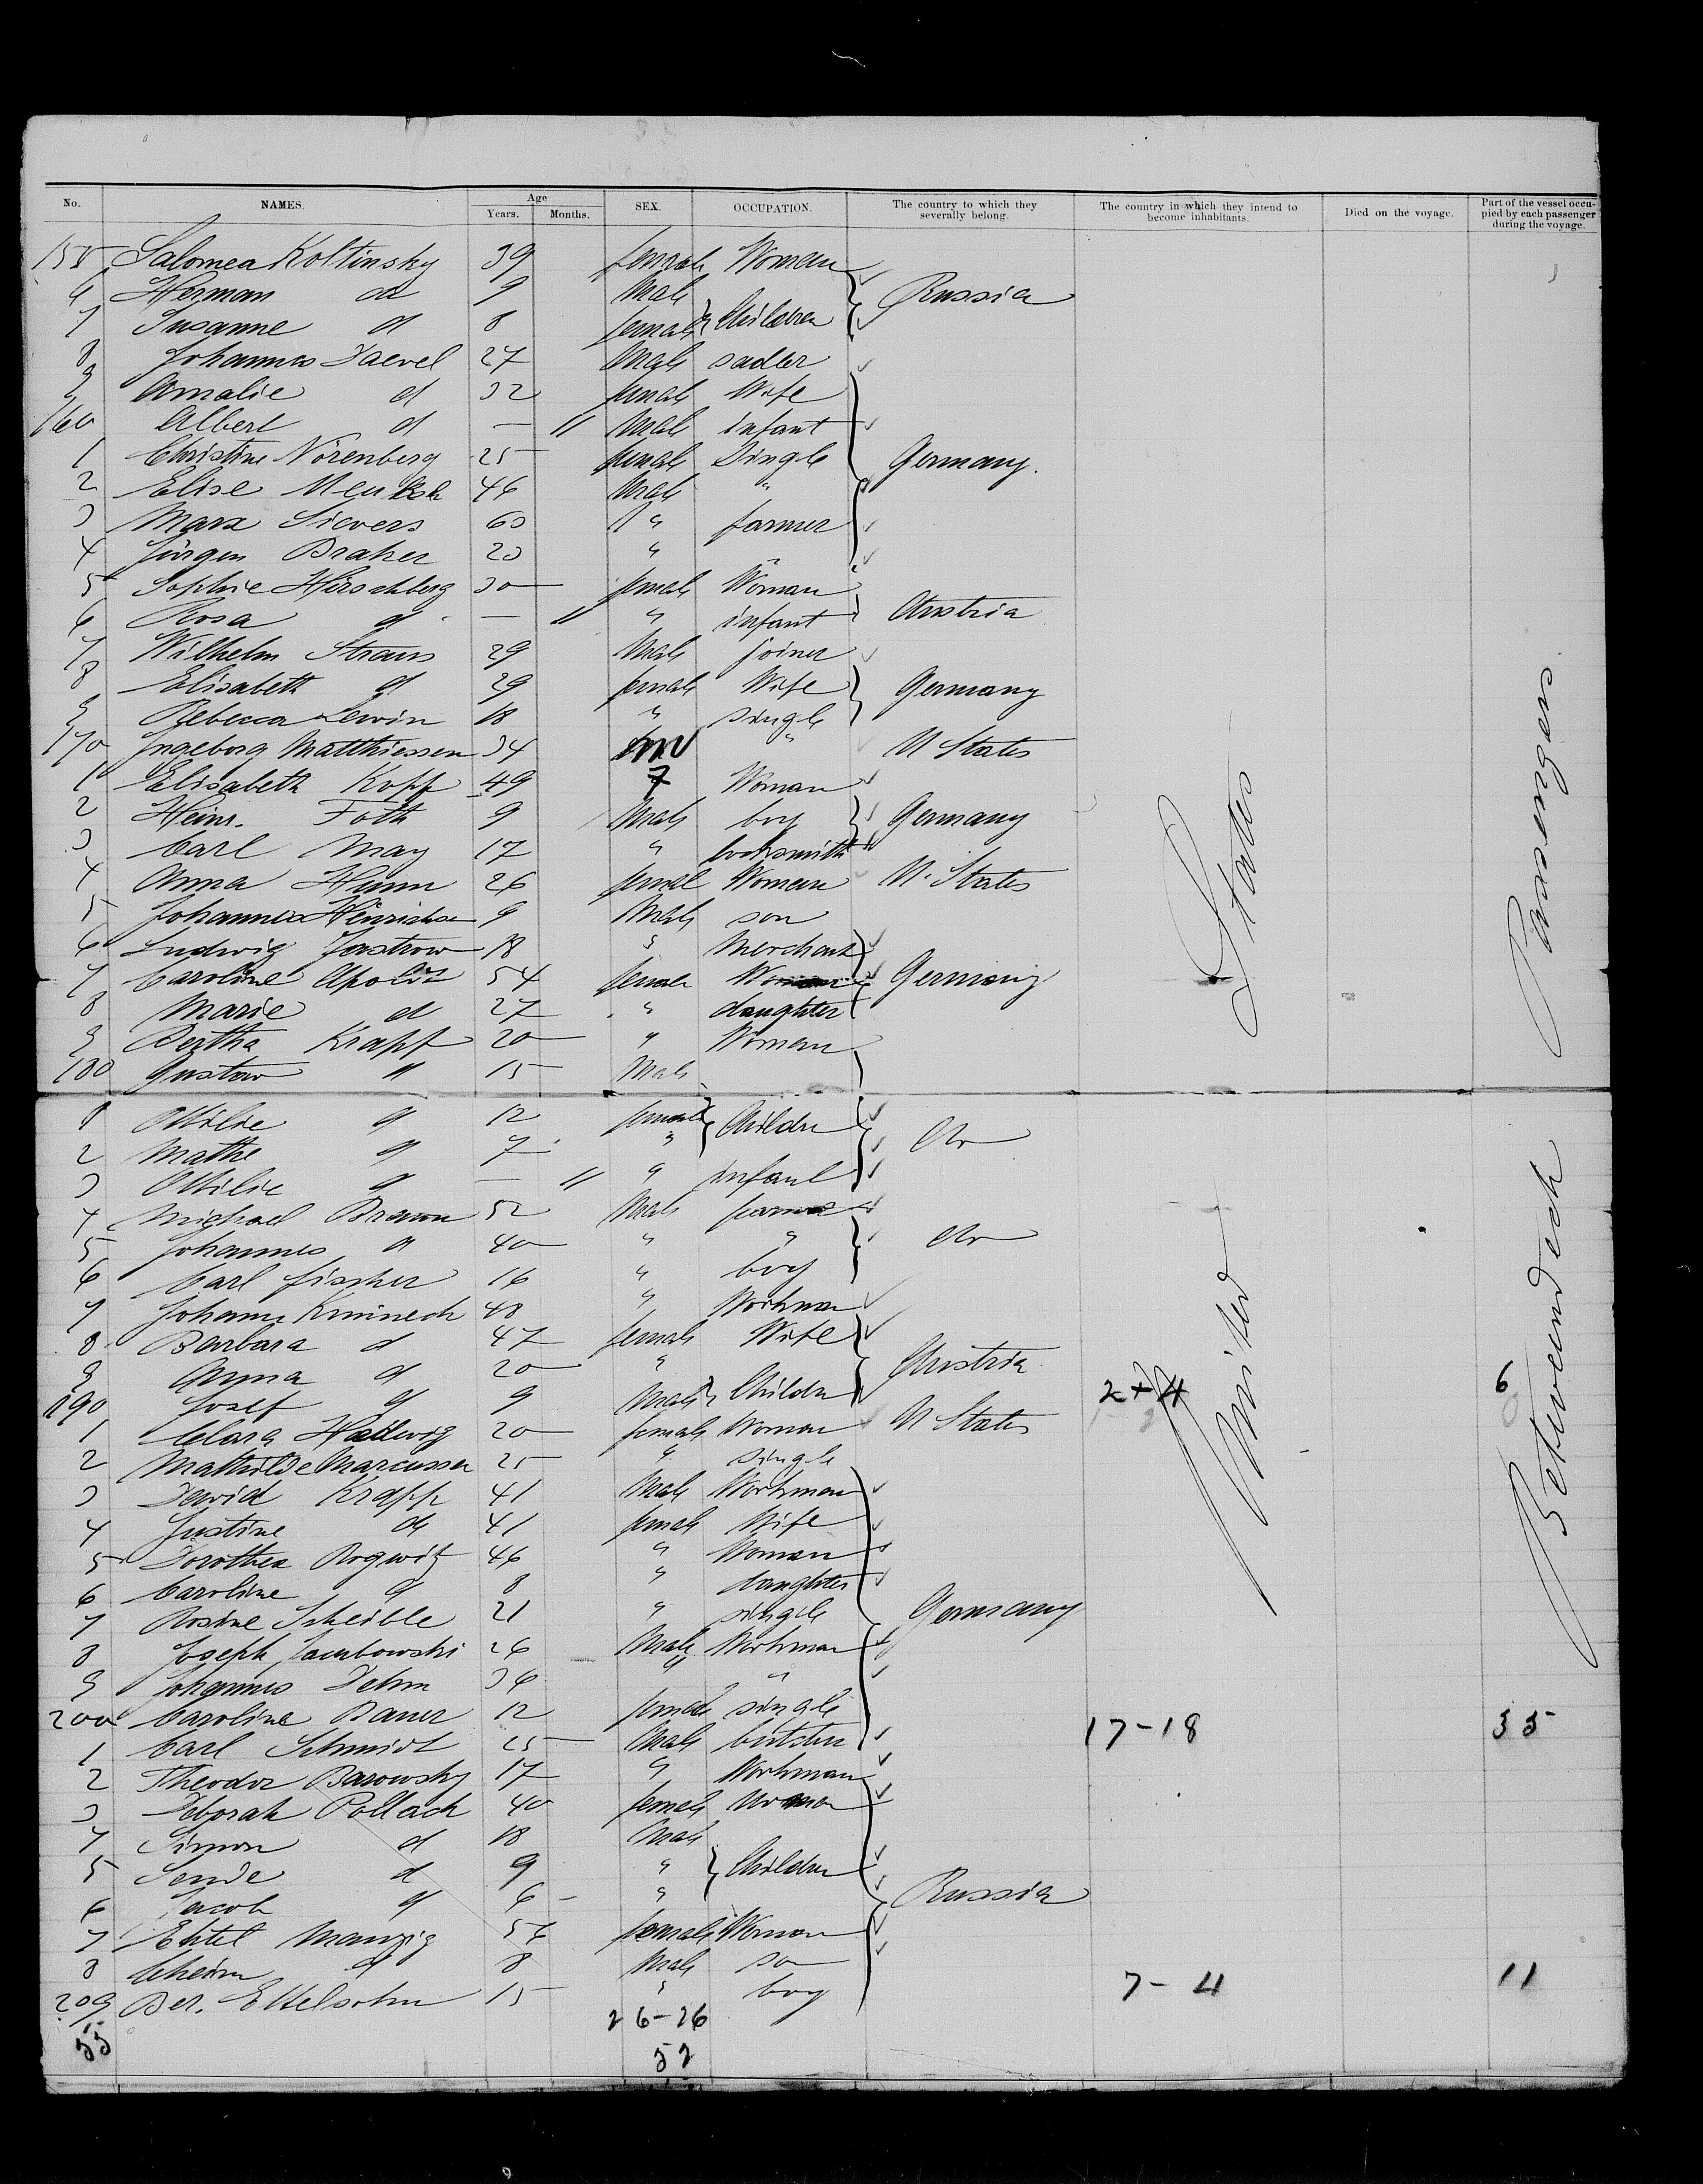 No. NAMES. Age Years. Months. SEX. OCCUPATION. The country to which they severally belong. The country in which they intend to become inhabitants. Died on the voyage. Part of the vessel occupied by each passenger during the voyage.
155 Salomea Koltinsky 39 female Woman
6 Herman do 9 Male Russia
7 Susanne d 8 female Children
8 Johannes Daevel 27 Male sadler
9 Amalie d 32 female Wife
160 Albert d — 11 Male infant
1 Christine Nörenberg 25 female Single Germany.
2 Elise 46 Male "
3 Marx Sievers 60 " farmer
4 Jürgen Braker 20 " "
5 Sophie Hirschberg 30 female Woman
6 Rosa d — 11 " infant Austria
7 Wilhelm Straus 29 Male joiner
8 Elisabeth d 29 female Wife Germany
9 Rebecca Lewin 18 " single
170 Ingeborg Matthiessen 34 " U States
1 Elisabeth Kopf 49 F Woman
2 Heinr. Foth 9 Male boy Germany
3 Carl May 17 " locksmith
4 Anna Hamm 26 female Woman U. States
5 Johannes Hinrichsen 9 Male son
6 Ludwig Jastrow 18 " Merchant
7 Caroline 54 female Woman Germany
8 Marie d 27 " daughter
9 Bertha Krapf 20 " Woman
180 Gustav " 15 Male
1 Ottilie d 12 female Children
2 Mathe d 7 " do
3 Ottilie d — 11 " infant
4 Michael Braun 52 Male farmer
5 Johannes d 40 " " do
6 Carl Fischer 16 " boy
7 Johann 48 " Workman
8 Barbara d 47 female Wife
9 Anna d 20 " Austria
190 Josef d 9 Male Children 2+4 6
1 Clara Hadwig 20 female Woman U States
2 Mathilde Marcussen 25 " single
3 David Krapp 41 Male Workman
4 Justine do 41 female Wife
5 Dorothea Rogwitz 46 " Woman
6 Caroline d 8 " daughter
7 Rosine Scheible 21 " single Germany
8 Joseph Jacubowski 26 Male Workman
9 Johannes Dehm 36 " "
200 Caroline Bauer 12 female single
1 Carl Schmidt 25 Male butcher 17-18 35
2 Theodor Barowsky 17 " Workman
3 Deborah Pollack 40 female woman
4 Simon d 18 Male
5 Sende d 9 " Children
6 Jacob d 6 " Russia
7 Ehtel Manzig 56 female Woman
8 Cheim d 8 Male son
209 Ber. Ettelsohn 15 " boy 7-4 11
55 26-26
52
United States
Betweendeck Passengers